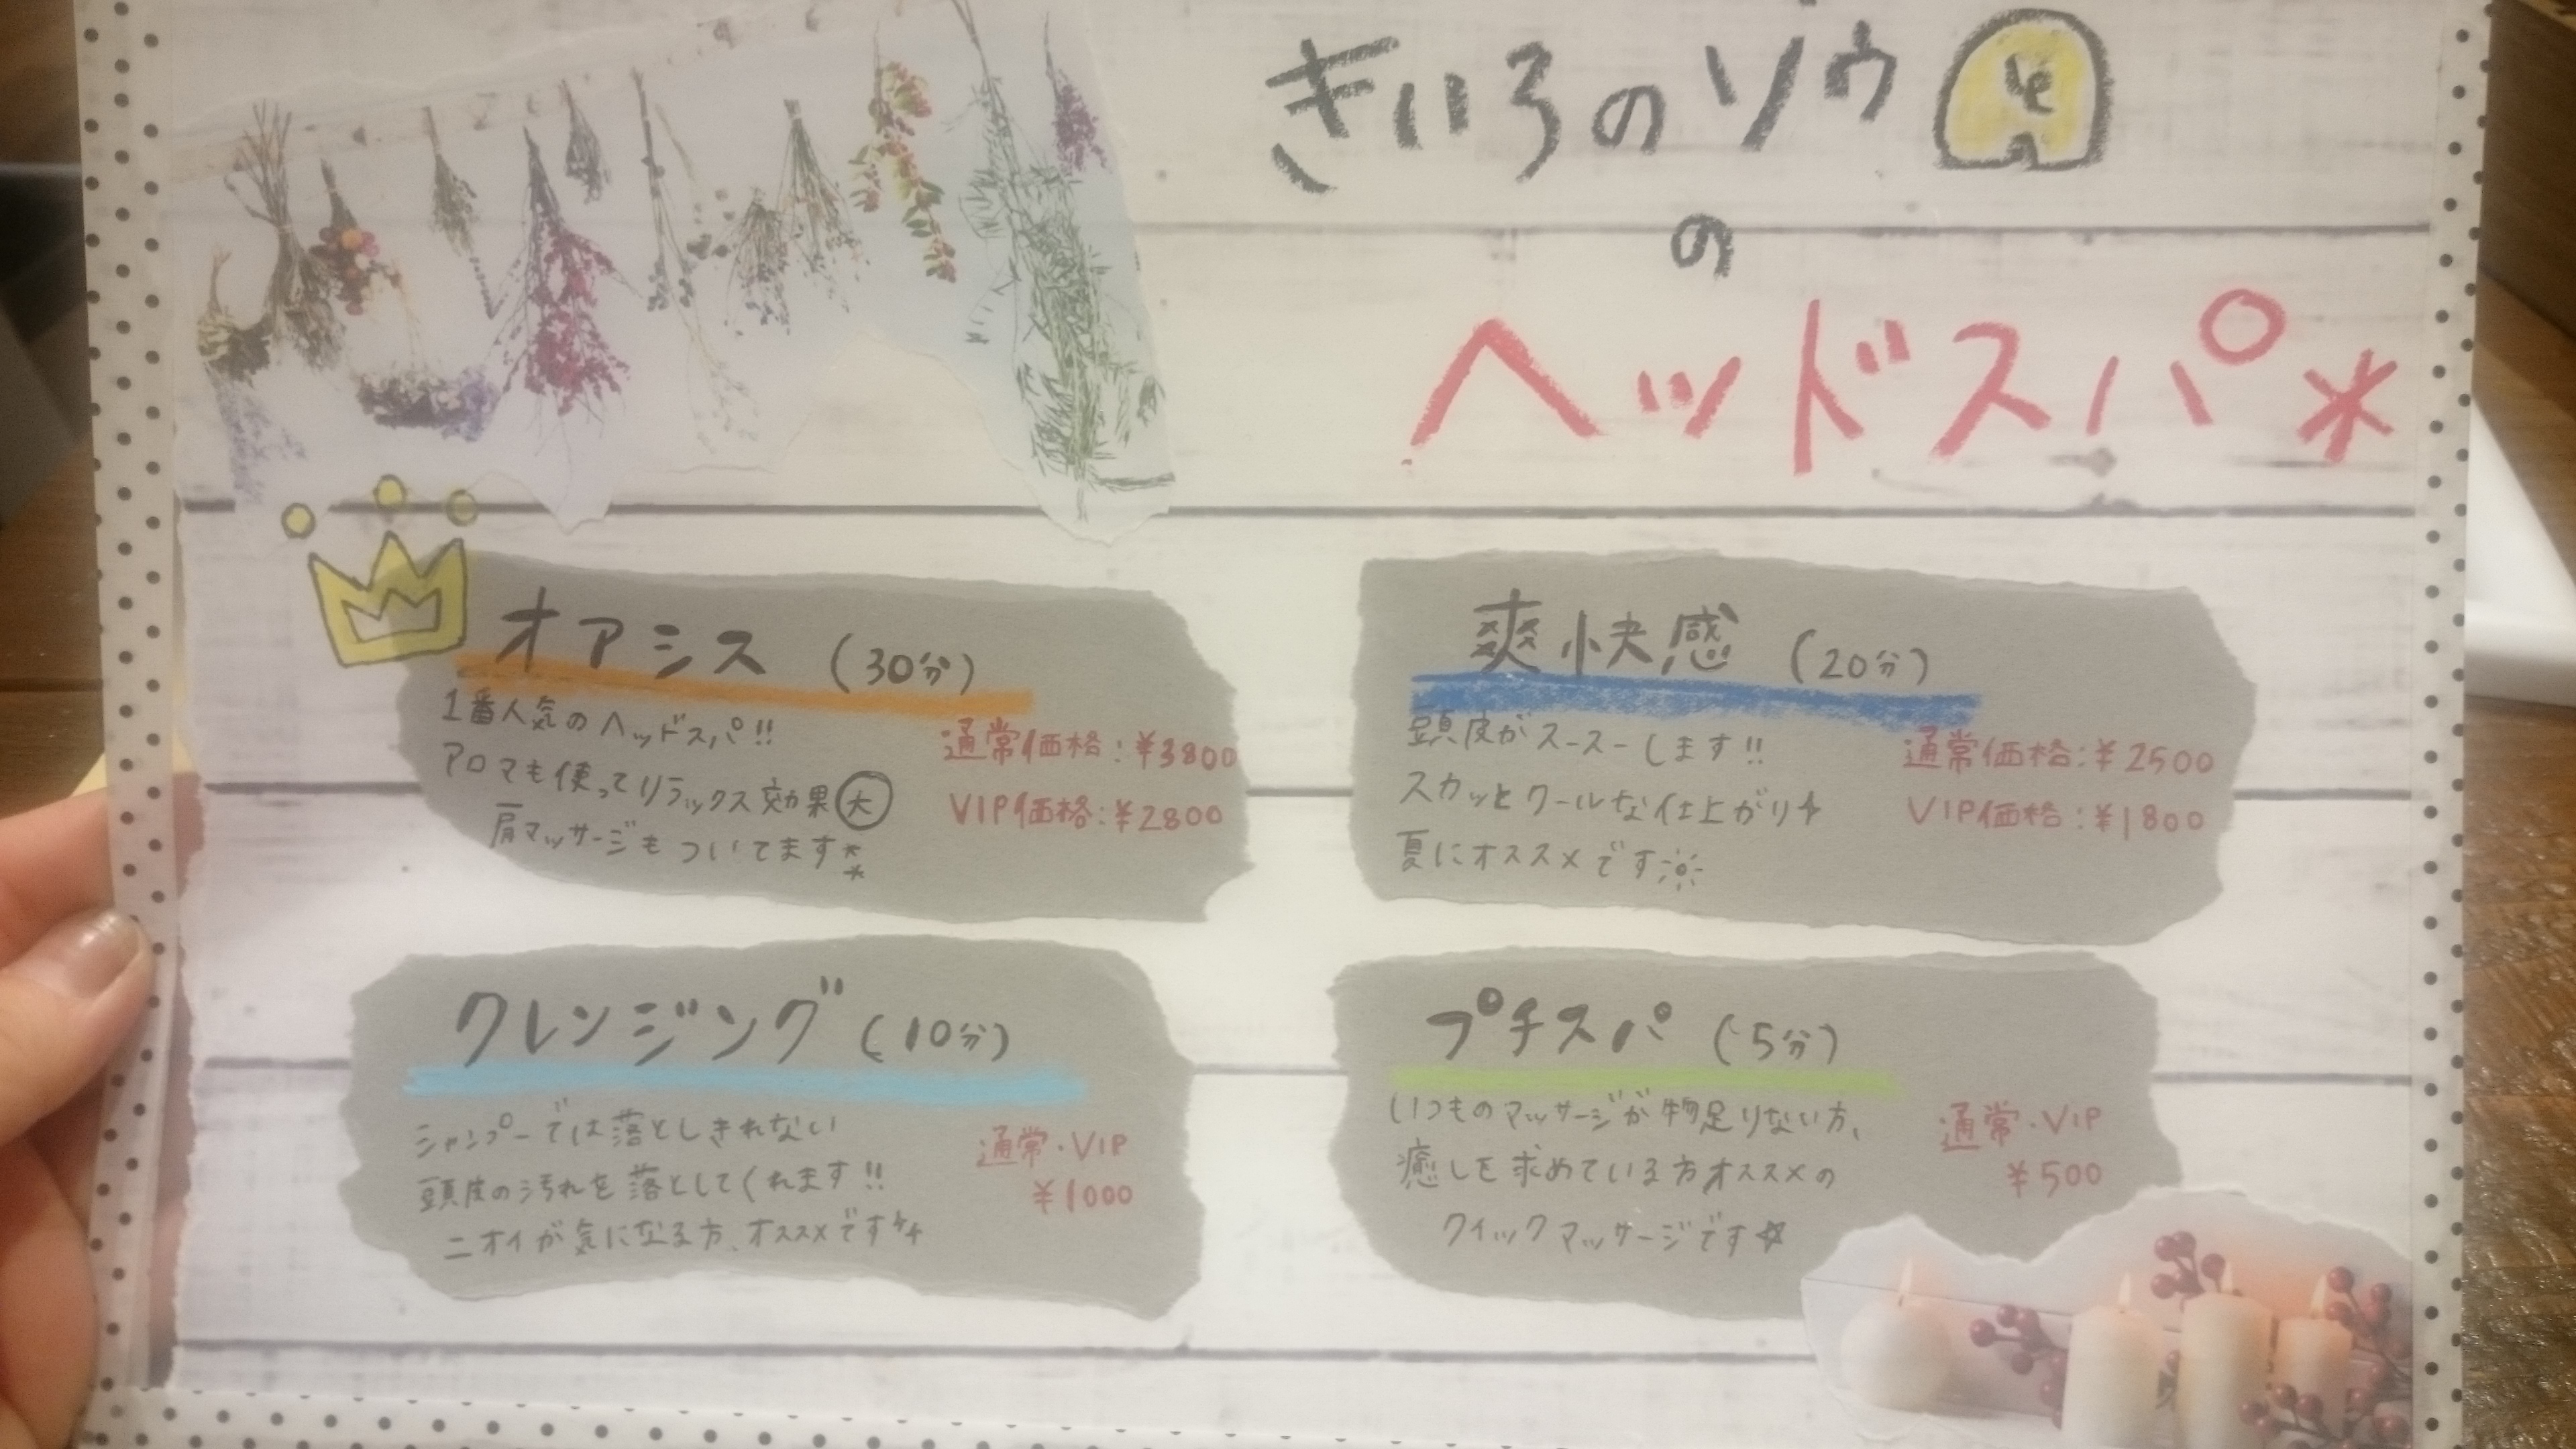 きいろのゾウ
の
ヘッドスパ*
オアシス (30分)
1番人気のヘッドスパ!!
アロマも使ってリラックス効果大
肩マッサージもついてます**
通常価格:¥3800
VIP価格:¥2800
爽快感 (20分)
頭皮がスースーします!!
スカッとクールな仕上がり
夏にオススメです
通常価格:¥2500
VIP価格:¥1800
クレンジング (10分)
シャンプーでは落としきれない
頭皮の汚れを落としてくれます!!
ニオイが気になる方、オススメです
通常・VIP
¥1000
プチスパ (5分)
いつものマッサージが物足りない方、
癒しを求めている方オススメの
クイックマッサージです☆
通常・VIP
¥500